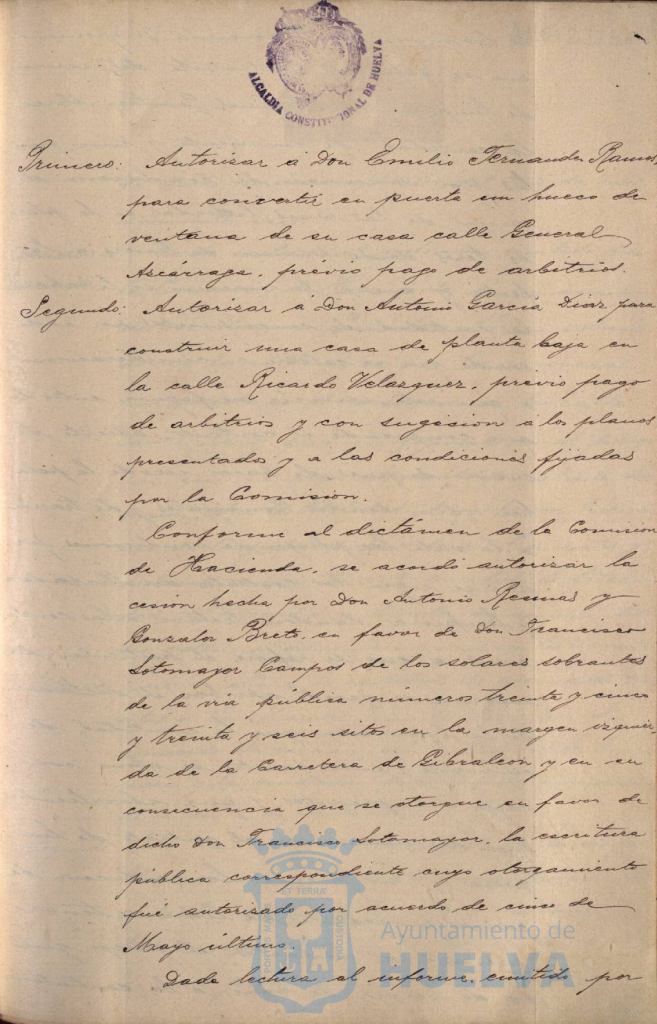 ALCALDIA CONSTITUCIONAL DE HUELVA
Primero: Autorizar á Don Emilio Fernandez Ramos,
para convertir en puerta un hueco de
ventana de su casa calle General
Azcárraga, prévio pago de arbitrios.
Segundo: Autorizar á Don Antonio García Diaz para
construir una casa de planta baja en
la calle Ricardo Velazquez, prévio pago
de arbitrios y con sugesion á los planos
presentados y a las condiciones fijadas
por la Comision.
Conforme al dictámen de la Comision
de Hacienda, se acordó autorizar la
cesión hecha por Don Antonio y
Gonzalez en favor de Don Francisco
Sotomayor Campos de los solares sobrantes
de la vía pública números treinta y cinco
y treinta y seis sitos en la margen izquier
da de la Carretera de Gibraleon y en su
consecuencia que se otorgue en favor de
dicho Don Francisco Sotomayor, la escritura
pública correspondiente cuyo otorgamiento
fué autorizado por acuerdo de cinco de
Mayo último.
Dada lectura al informe emitido por
Ayuntamiento de
HUELVA